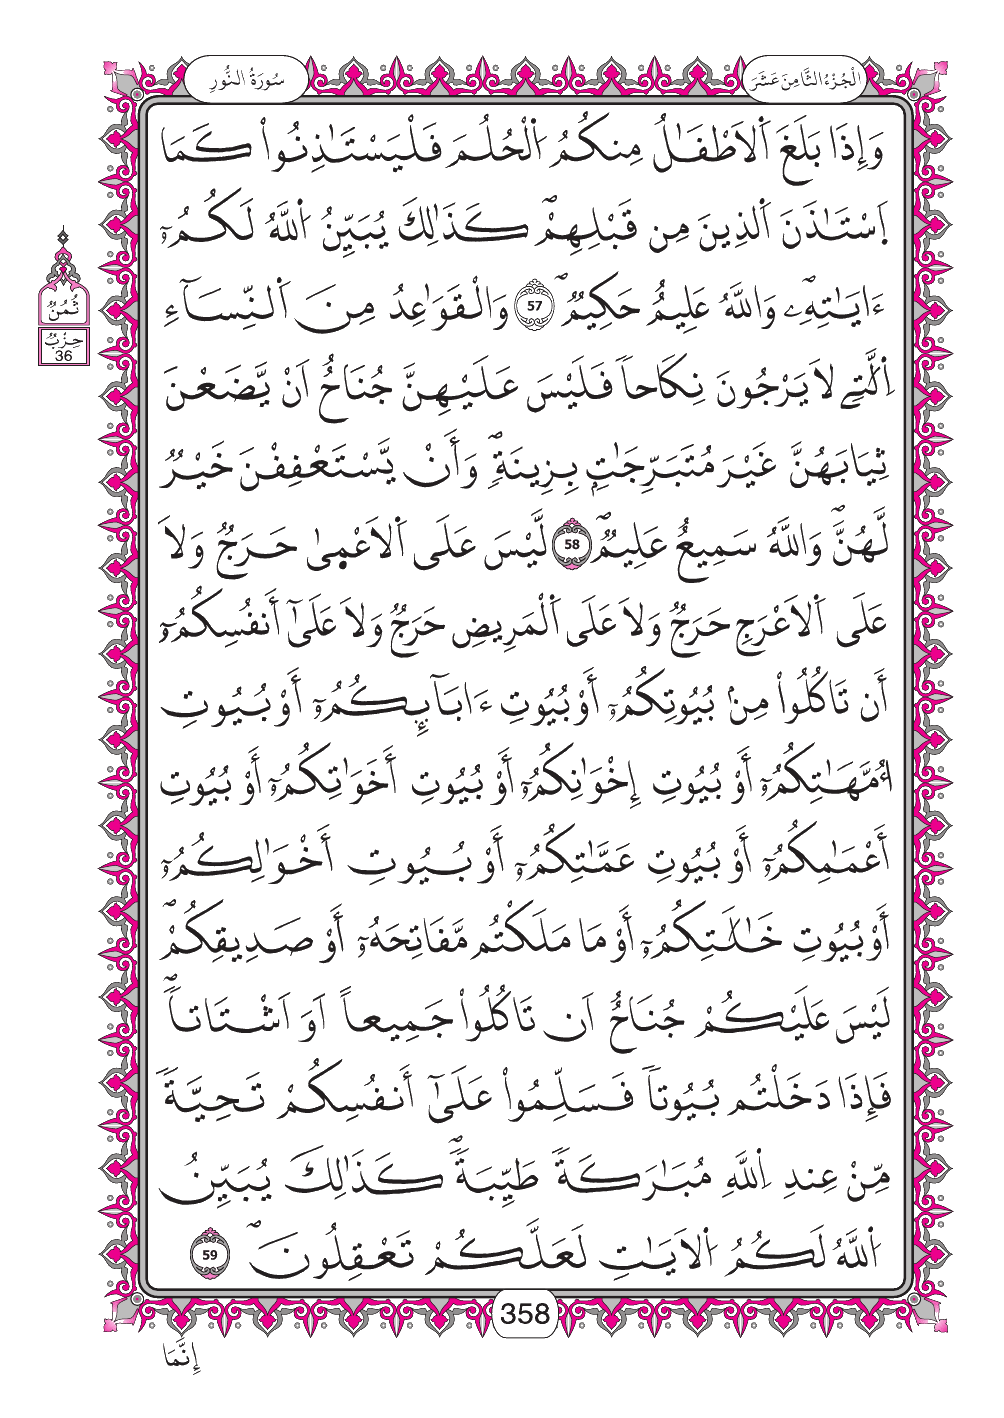 الْجُزْءُ الثَّامِنَ عَشَرَ
سُورَةُ النُّورِ
وَإِذَا بَلَغَ اَ۬لَاطْفَٰلُ مِنكُمُ اُ۬لْحُلُمَ فَلْيَسْتَٰذِنُواْ كَمَا
اَ۪سْتَٰذَنَ اَ۬لذِينَ مِن قَبْلِهِمْۖ كَذَٰلِكَ يُبَيِّنُ اُ۬للَّهُ لَكُمُۥٓ
ءَايَٰتِهِۦۖ وَاللَّهُ عَلِيمٌ حَكِيمٌۖ 57 وَالْقَوَٰعِدُ مِنَ اَ۬لنِّسَآءِ
اِ۬لَّٰتِے لَا يَرْجُونَ نِكَاحاٗ فَلَيْسَ عَلَيْهِنَّ جُنَاحٌ اَنْ يَّضَعْنَ
ثِيَابَهُنَّ غَيْرَ مُتَبَرِّجَٰتِۢ بِزِينَةٖۖ وَأَنْ يَّسْتَعْفِفْنَ خَيْرٞ
لَّهُنَّۖ وَاللَّهُ سَمِيعٌ عَلِيمٞۖ 58 لَّيْسَ عَلَى اَ۬لَاعْم۪ىٰ حَرَجٞ وَلَا
عَلَى اَ۬لَاعْرَجِ حَرَجٞ وَلَا عَلَى اَ۬لْمَرِيضِ حَرَجٞ وَلَا عَلَىٰٓ أَنفُسِكُمُۥٓ
أَن تَاكُلُواْ مِنۢ بُيُوتِكُمُۥٓ أَوْ بُيُوتِ ءَابَآئِكُمُۥٓ أَوْ بُيُوتِ
أُمَّهَٰتِكُمُۥٓ أَوْ بُيُوتِ إِخْوَٰنِكُمُۥٓ أَوْ بُيُوتِ أَخَوَٰتِكُمُۥٓ أَوْ بُيُوتِ
أَعْمَٰمِكُمُۥٓ أَوْ بُيُوتِ عَمَّٰتِكُمُۥٓ أَوْ بُيُوتِ أَخْوَٰلِكُمُۥٓ
أَوْ بُيُوتِ خَٰلَٰتِكُمُۥٓ أَوْ مَا مَلَكْتُم مَّفَاتِحَهُۥٓ أَوْ صَدِيقِكُمْۖ
لَيْسَ عَلَيْكُمْ جُنَاحٌ اَن تَاكُلُواْ جَمِيعاً اَوَ اَشْتَاتاٗۖ
فَإِذَا دَخَلْتُم بُيُوتاٗ فَسَلِّمُواْ عَلَىٰٓ أَنفُسِكُمْ تَحِيَّةٗ
مِّنْ عِندِ اِ۬للَّهِ مُبَٰرَكَةٗ طَيِّبَةٗۖ كَذَٰلِكَ يُبَيِّنُ
اُ۬للَّهُ لَكُمُ اُ۬لَايَٰتِ لَعَلَّكُمْ تَعْقِلُونَۖ 59
ثُمُنٌ
حِزْبٌ
36
358
إِنَّمَا